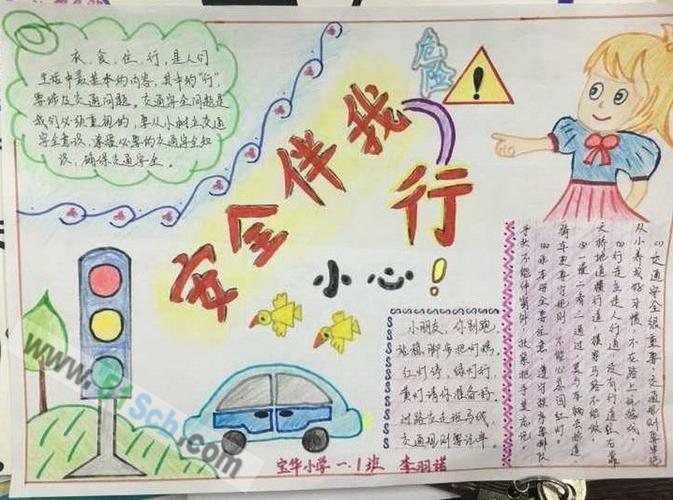 衣、食、住、行,是人们
生活中最基本的内容,其中的“行”
要涉及交通问题。交通安全问题是
我们必须重视的,要从小树立交通
安全意识,掌握必要的交通安全知
识,确保交通安全。
危险
!
安全伴我行
小心!
小朋友,你别跑,
站稳脚步把灯瞧,
红灯停,绿灯行,
黄灯请你准备好,
过路应走斑马线,
交通规则要记牢。
(1)交通安全很重要,交通规则要牢记
从小养成好习惯,不在路上玩游戏。
(2)行走应走人行道,没有行道往右靠
天桥地道横行道,横穿马路不能做
(3)一慢二看三通过,莫与车辆去抢道。
骑车更要守规则,不能心急闯红灯。
(4)乘车安全要注意,遵守秩序要排队
手头不能伸窗外,扶紧把手莫忘记。
宝华小学一.1班 李羽诺
www.51Sch.com